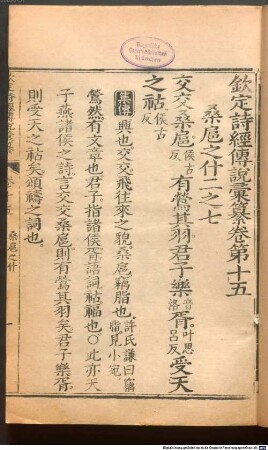 欽定詩經傳說彙纂卷第十五
桑扈之什二之七
交交桑扈侯古反有鶯其羽君子樂音洛胥叶思呂反受天
之祜侯古反
集傳興也交交飛往來之貌桑扈竊脂也許氏謙曰竊脂見小宛
鶯然有文章也君子指諸侯胥語詞祜福也○此亦天
子燕諸侯之詩言交交桑扈則有鶯其羽矣君子樂胥
則受天之祜矣頌禱之詞也
桑扈之什